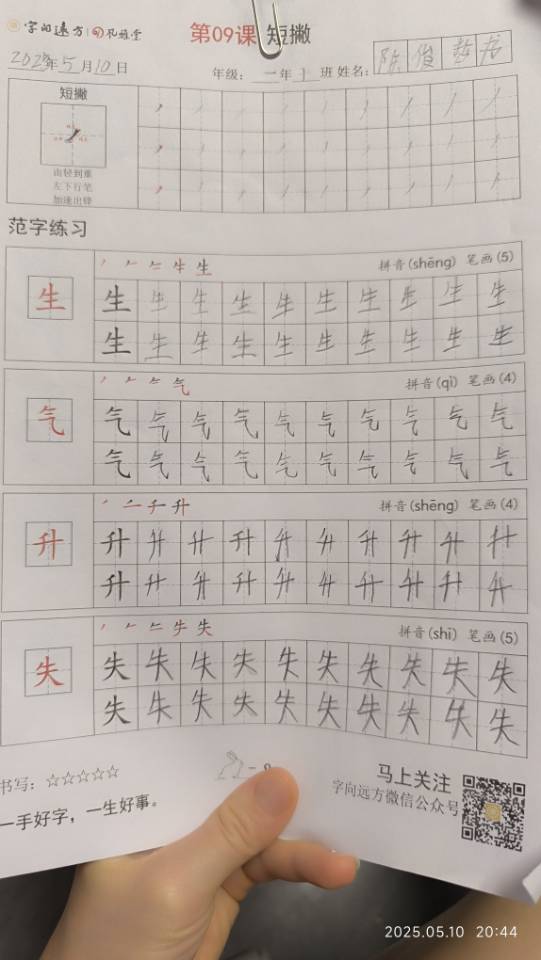 字向远方 孔雅堂
第09课 短撇
2025年5月10日
年级: 一年 班 姓名: 陈俊哲
短撇
由轻到重
左下行笔
加速出锋
范字练习
生 拼音(shēng) 笔画(5)
生
生 生 生 生 生 生 生 生 生 生
生 生 生 生 生 生 生 生 生 生
气 拼音(qì) 笔画(4)
气
气 气 气 气 气 气 气 气 气 气
气 气 气 气 气 气 气 气 气 气
升 拼音(shēng) 笔画(4)
升
升 升 升 升 升 升 升 升 升 升
升 升 升 升 升 升 升 升 升 升
失 拼音(shī) 笔画(5)
失
失 失 失 失 失 失 失 失 失 失
失 失 失 失 失 失 失 失 失 失
书写: ☆☆☆☆☆
一手好字，一生好事。
马上关注
字向远方微信公众号
2025.05.10 20:44